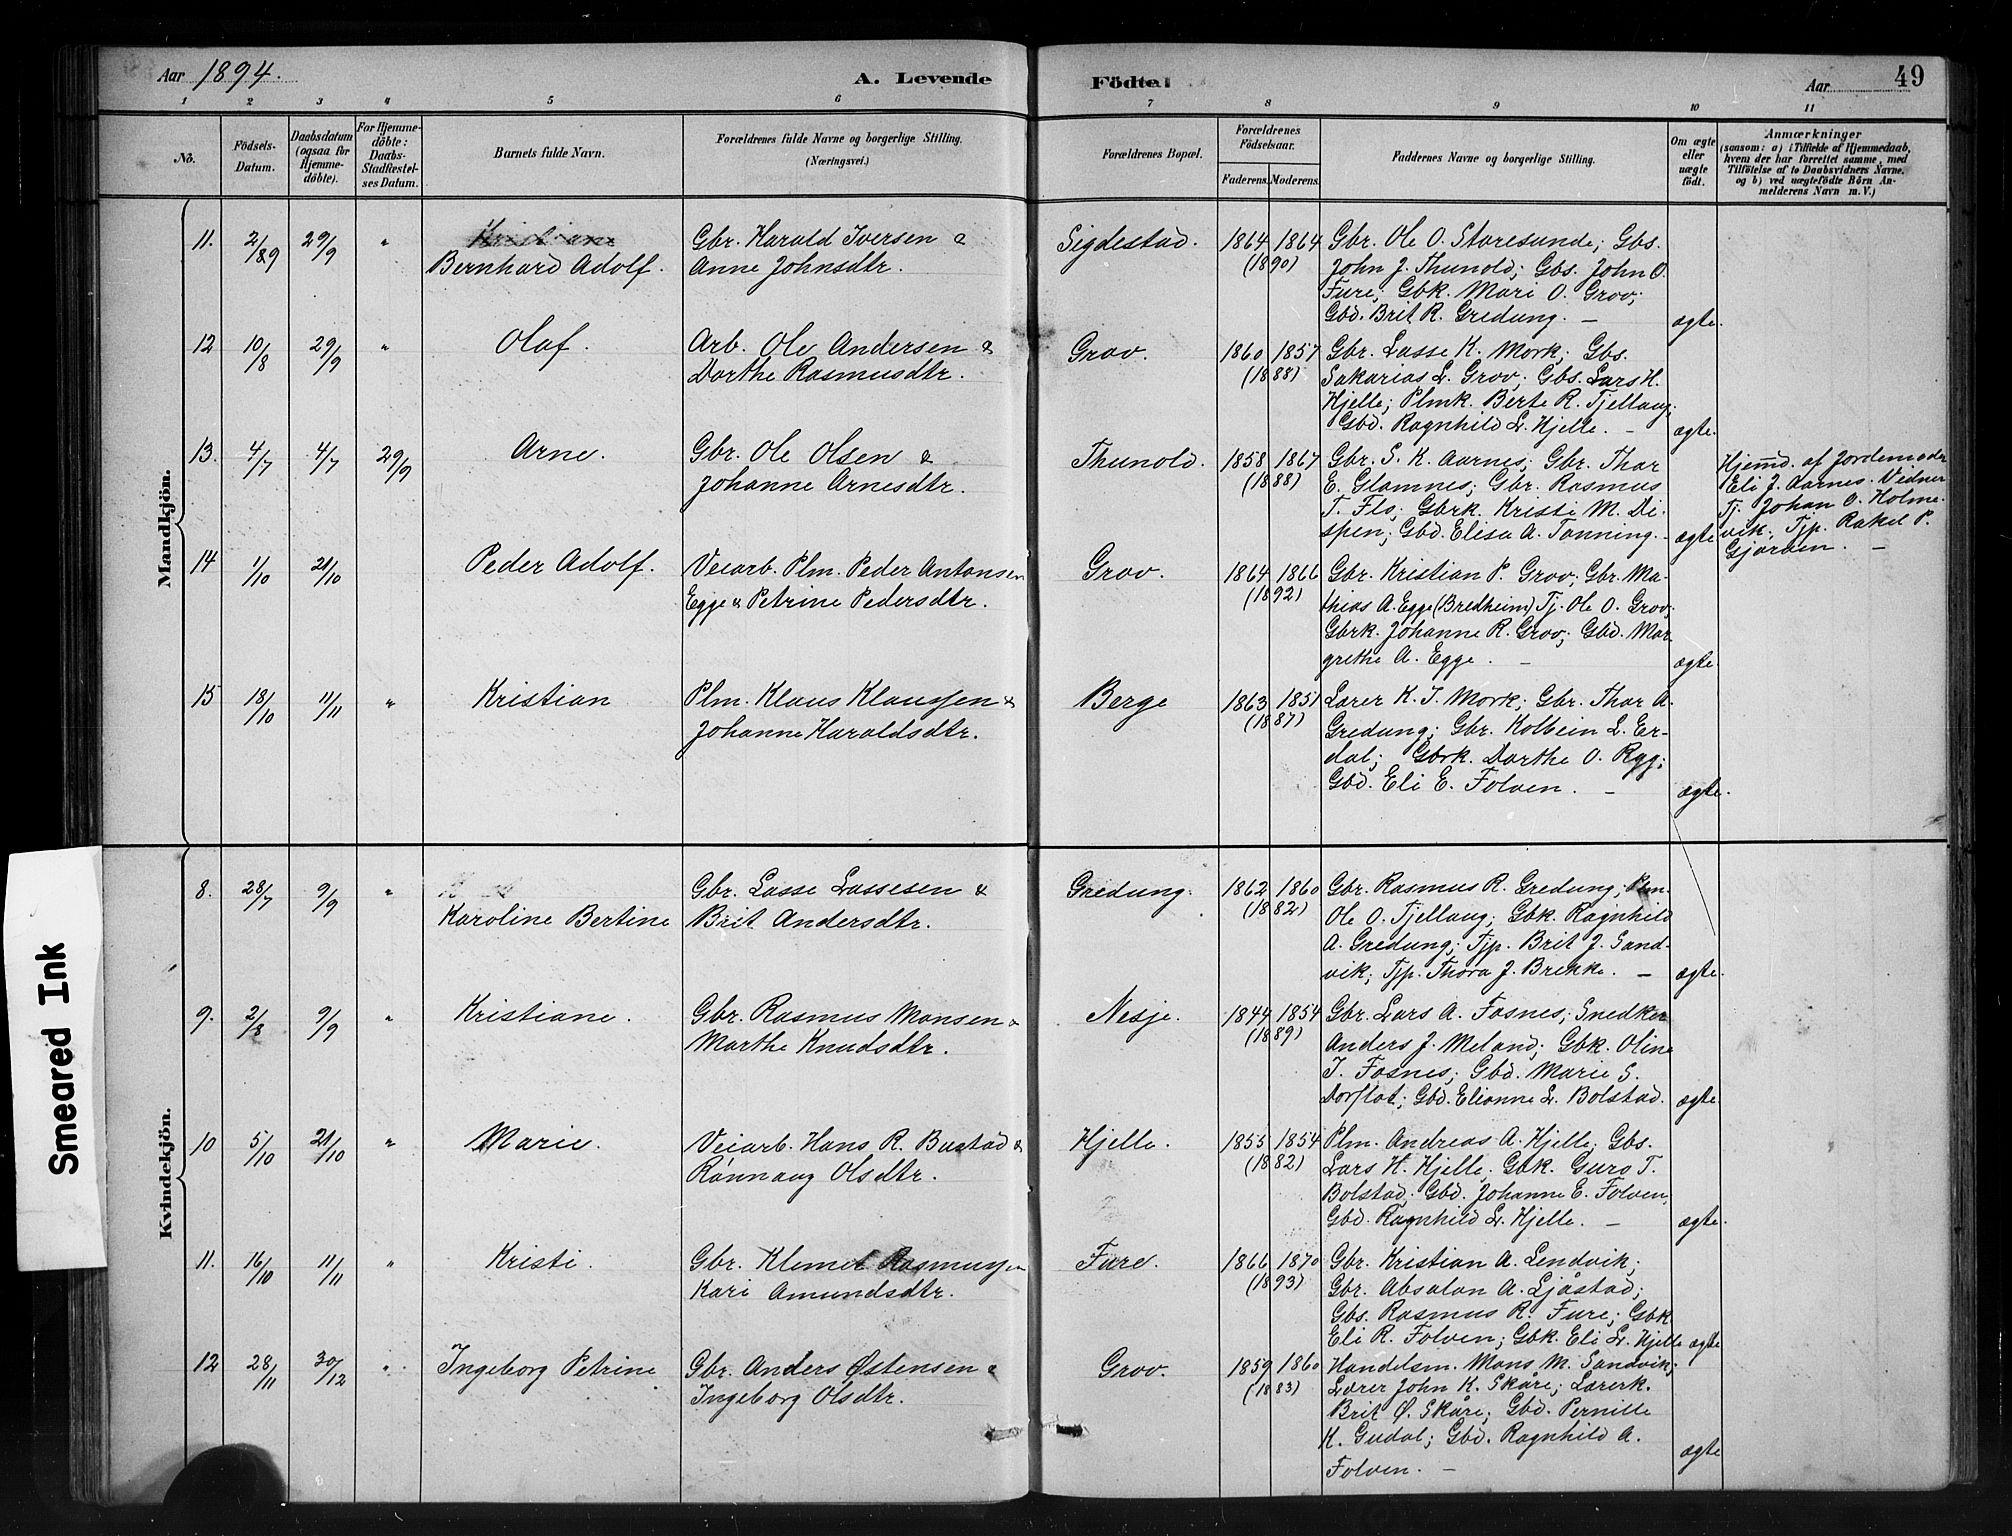 Aar 1894.
A. Levende Födte.
Aar
49
1 2 3 4 5 6 7 8 9 10 11
No.
Födsels-Datum.
Daabsdatum (ogsaa for Hjemme-döbte).
For Hjemme-döbte: Daabs-Stadfæstel-ses Datum.
Barnets fulde Navn.
Forældrenes fulde Navne og borgerlige Stilling. (Næringsvei.)
Forældrenes Bopæl.
Forældrenes Födselsaar.
Faderens. Moderens.
Faddernes Navne og borgerlige Stilling.
Om ægte eller uægte födt.
Anmærkninger
(saasom: a) i Tilfælde af Hjemmedaab, hvem der har forrettet samme, med Tilföielse af to Daabsvidners Navne, og b) ved uægtefödte Börn An-melderens Navn m. V.)
Mandkjön.
11. 2/8 29/9 " Bernhard Adolf. Gbr. Harald Iversen & Anne Johnsdtr. Sigdestad. 1864 1864 (1890)
Gbr. Ole O. Staresunde; Gbs.
John J. Thunold; Gbs. John O.
Fure; Gbk. Mari O. Grov;
Gbd. Brit R. Gredung. — ægte.
12 10/8 29/9 " Olaf. Arb. Ole Andersen & Dorthe Rasmusdtr. Grov. 1860 1857 (1888)
Gbr. Lasse K. Mork; Gbs.
Sakarias L. Grov; Gbs. Lars H.
Hjelle; Plmk. Berte R. Tjellaug;
Gbd. Ragnhild L. Hjelle. — ægte.
13. 4/7 4/7 29/9 Arne. Gbr. Ole Olsen & Johanne Arnesdtr. Thunold. 1858 1867 (1888)
Gbr. S. K. Aarnes; Gbr. Thor
E. Glomnes; Gbr. Rasmus
T. Flo; Gbrk. Kristi M. Di-
spen; Gbd. Elisa A. Tonning. ægte
Hjemd. af Jordemoder
Eli J. Aarnes. Vidner
Tj. Johan O. Holme-
vik, Tjp. Rakel P.
Gjørven. —
14 1/10 21/10 Peder Adolf. Veiarb. Plm. Peder Antonsen Egge & Petrine Pedersdtr. Grov. 1864 1866 (1892)
Gbr. Kristian P. Grov; Gbr. Ma-
thias A. Egge (Bredheim) Tj. Ole O. Grov;
Gbrk. Johanne R. Grov; Gbd. Mar-
grethe A. Egge. — ægte.
15 18/10 11/11 " Kristian Plm. Klaus Klaussen & Johanne Haraldsdtr. Berge 1863 1851 (1887)
Lærer K. J. Mork; Gbr. Thor A.
Gredung; Gbr. Kolbein L. Er-
dal; Gbrk. Dorthe O. Ryg;
Gbd. Eli E. Folven. — ægte.
Kvindekjön.
8. 28/7 9/9 " Karoline Bertine Gbr. Lasse Lassesen & Brit Andersdtr. Gredung. 1862 1860 (1882)
Gbr. Rasmus R. Gredung; Plm.
Ole O. Tjellaug; Gbk. Ragnhild
A. Gredung; Tjp. Brit J. Sand-
vik; Tjp. Thora J. Brekke. — ægte.
9. 2/8 9/9 " Kristiane. Gbr. Rasmus Monsen & Marthe Knudsdtr. Nesje. 1844 1854 (1889)
Gbr. Lars A. Fosnes; Snedker
Anders J. Meland; Gbk. Oline
J. Fosnes; Gbd. Marie S.
Dorflot; Gbd. Elianne L. Bolstad. ægte.
10 5/10 21/10 " Marie. Veiarb. Hans R. Bustad & Rønnaug Olsdtr. Hjelle. 1855 1854 (1882)
Plm. Andreas A. Hjelle; Gbs.
Lars H. Hjelle; Gbk. Guro T.
Bolstad; Gbd. Johanne E. Folven,
Gbd. Ragnhild L. Hjelle. — ægte.
11. 16/10 11/11 " Kristi. Gbr. Klemet Rasmussen Kari Amundsdtr. Fure. 1866 1870 (1893)
Gbr. Kristian A. Lendvik;
Gbr. Absalon A. Ljåstad;
Gbs. Rasmus R. Fure; Gbk.
Eli R. Folven; Gbk. Eli L. Hjelle ægte
12 28/11 30/12 " Ingeborg Petrine Gbr. Anders Østensen & Ingeborg Olsdtr. Grov. 1859 1860 (1883)
Handelsm. Mons M. Sandvik;
Lærer John K. Skåre; Lærerk.
Brit Ø. Skåre; Gbd. Pernille
K. Gudal; Gbd. Ragnhild A.
Folven. — ægte
Smeared Ink